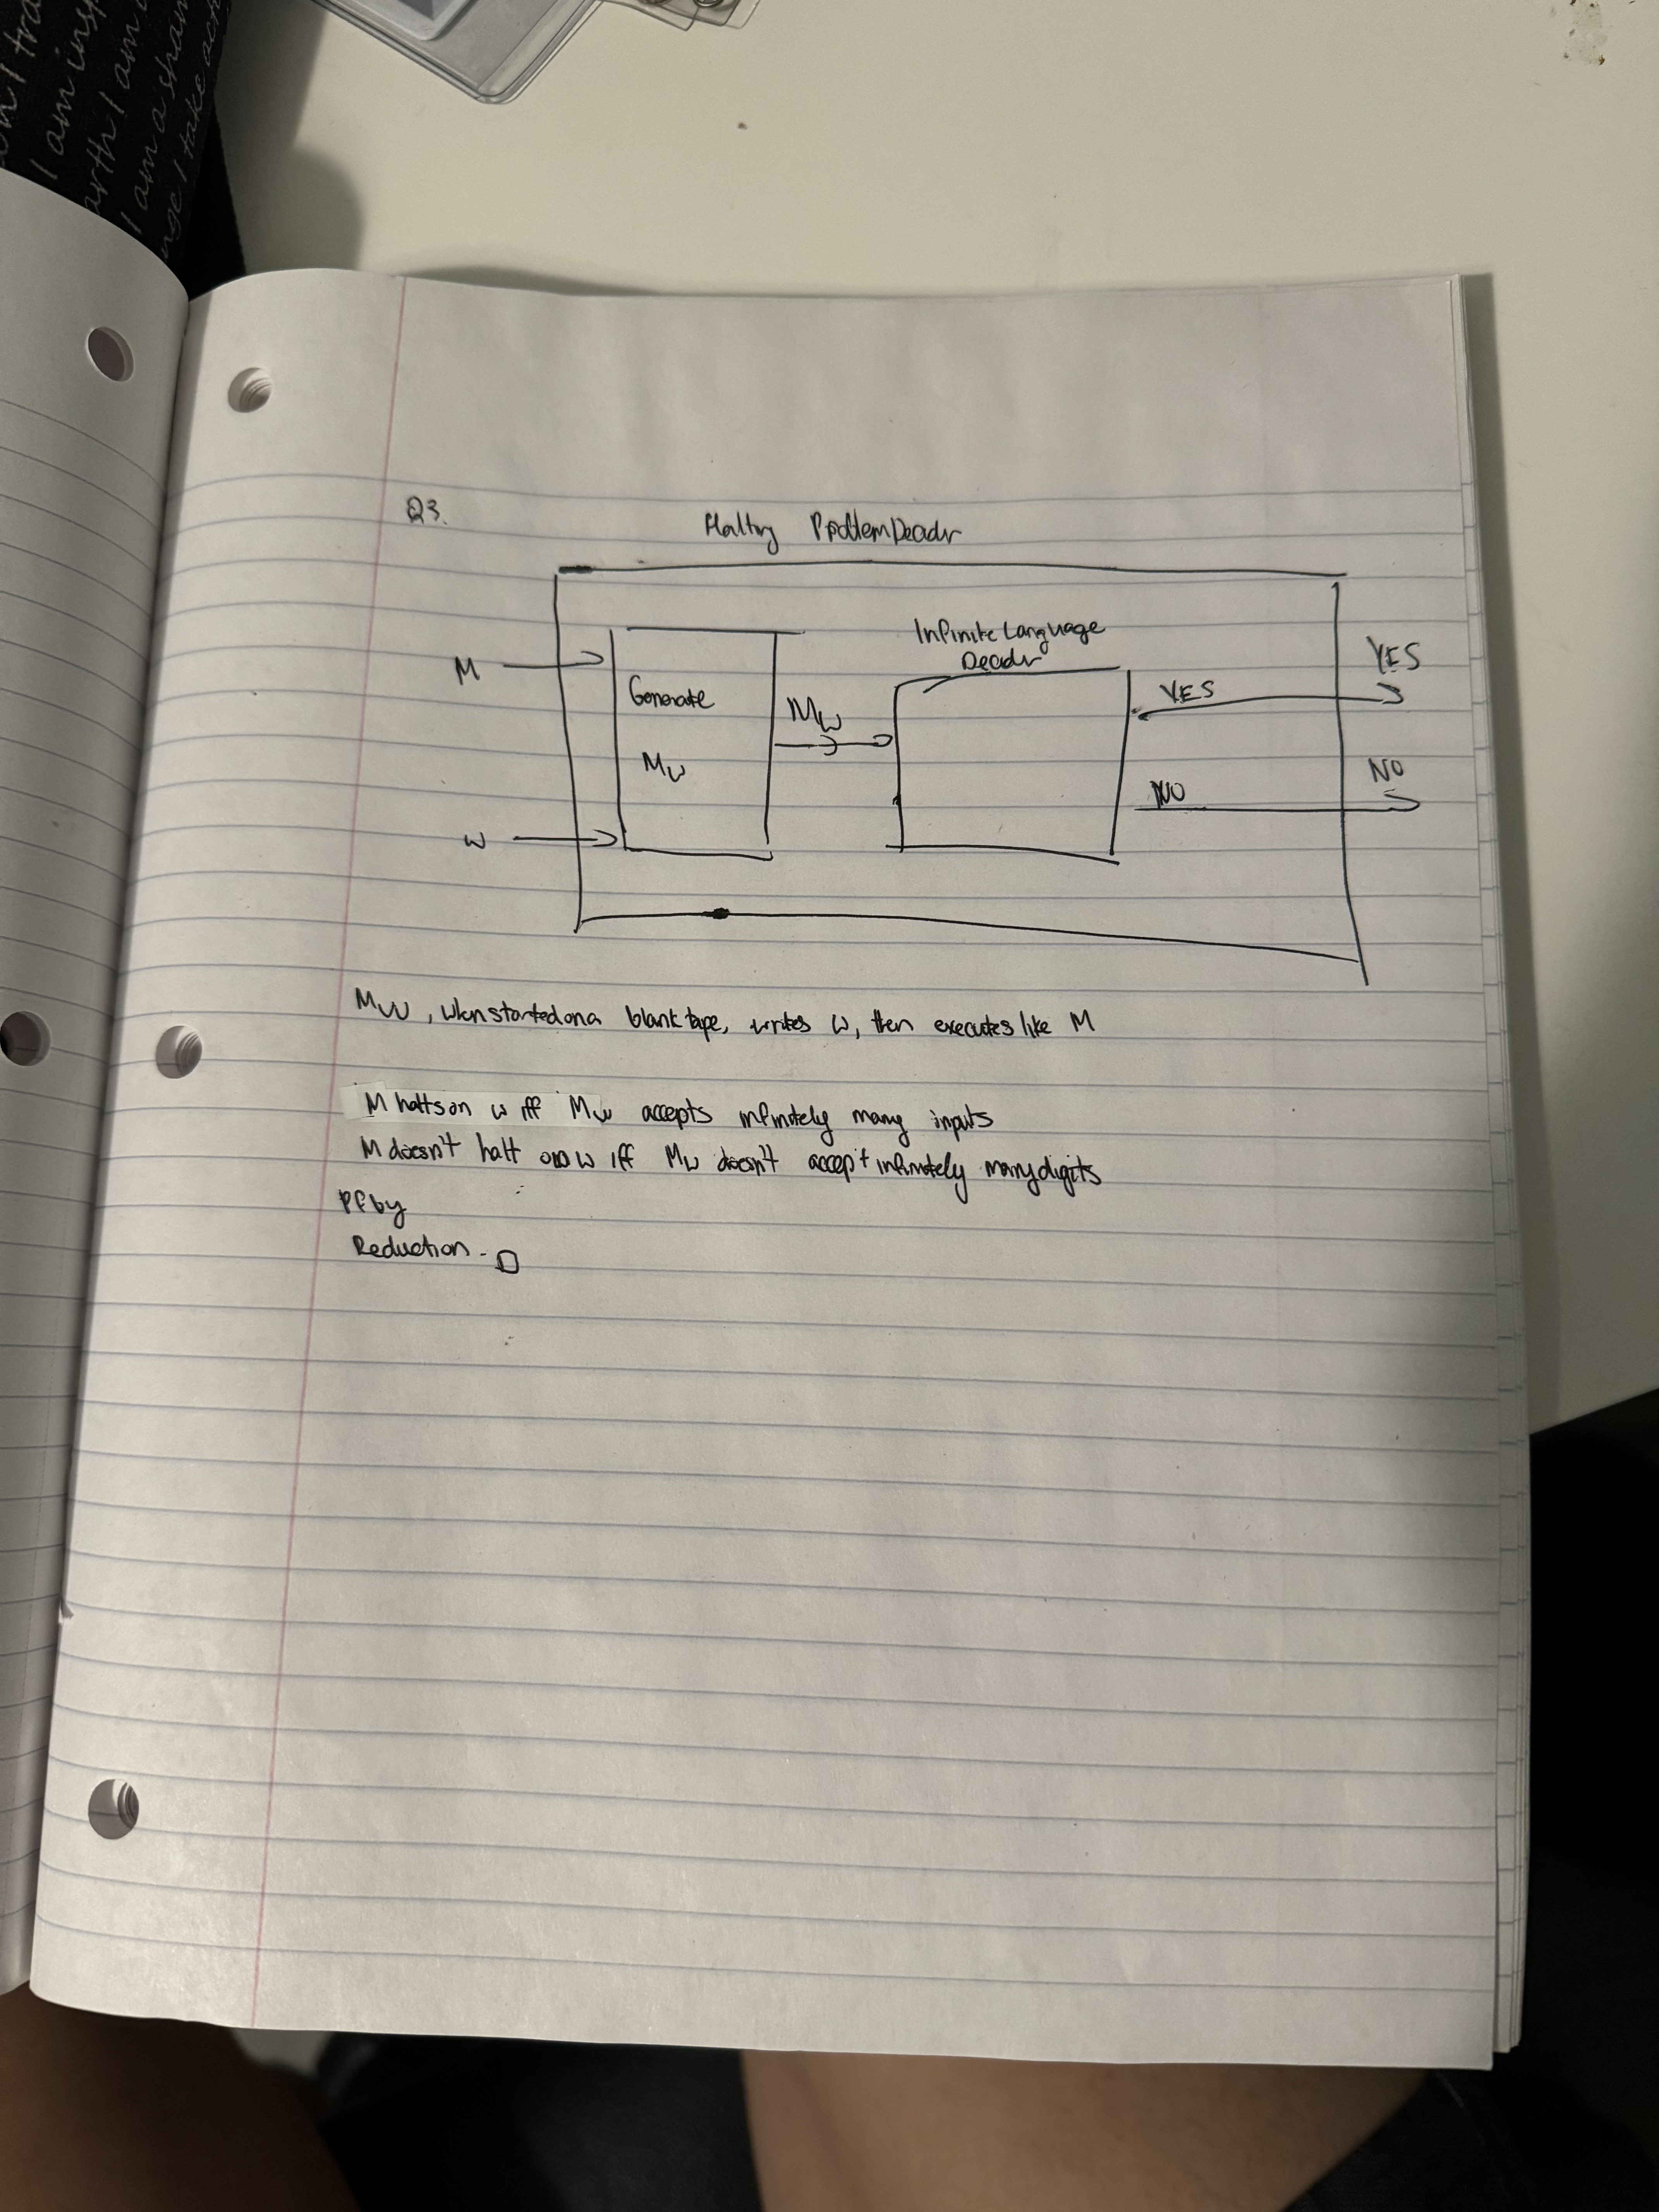 I am insp
arth I am
I am a sham
Q3.
Halting Problem Decider
Infinite Language
Decider
M
Generate
Mw
Mw
w
YES
YES
NO
NO
Mw, when started on a blank tape, writes w, then executes like M
M halts on w iff Mw accepts infinitely many inputs
M doesn't halt on w iff Mw doesn't accept infinitely many digits
Pf by
Reduction. □